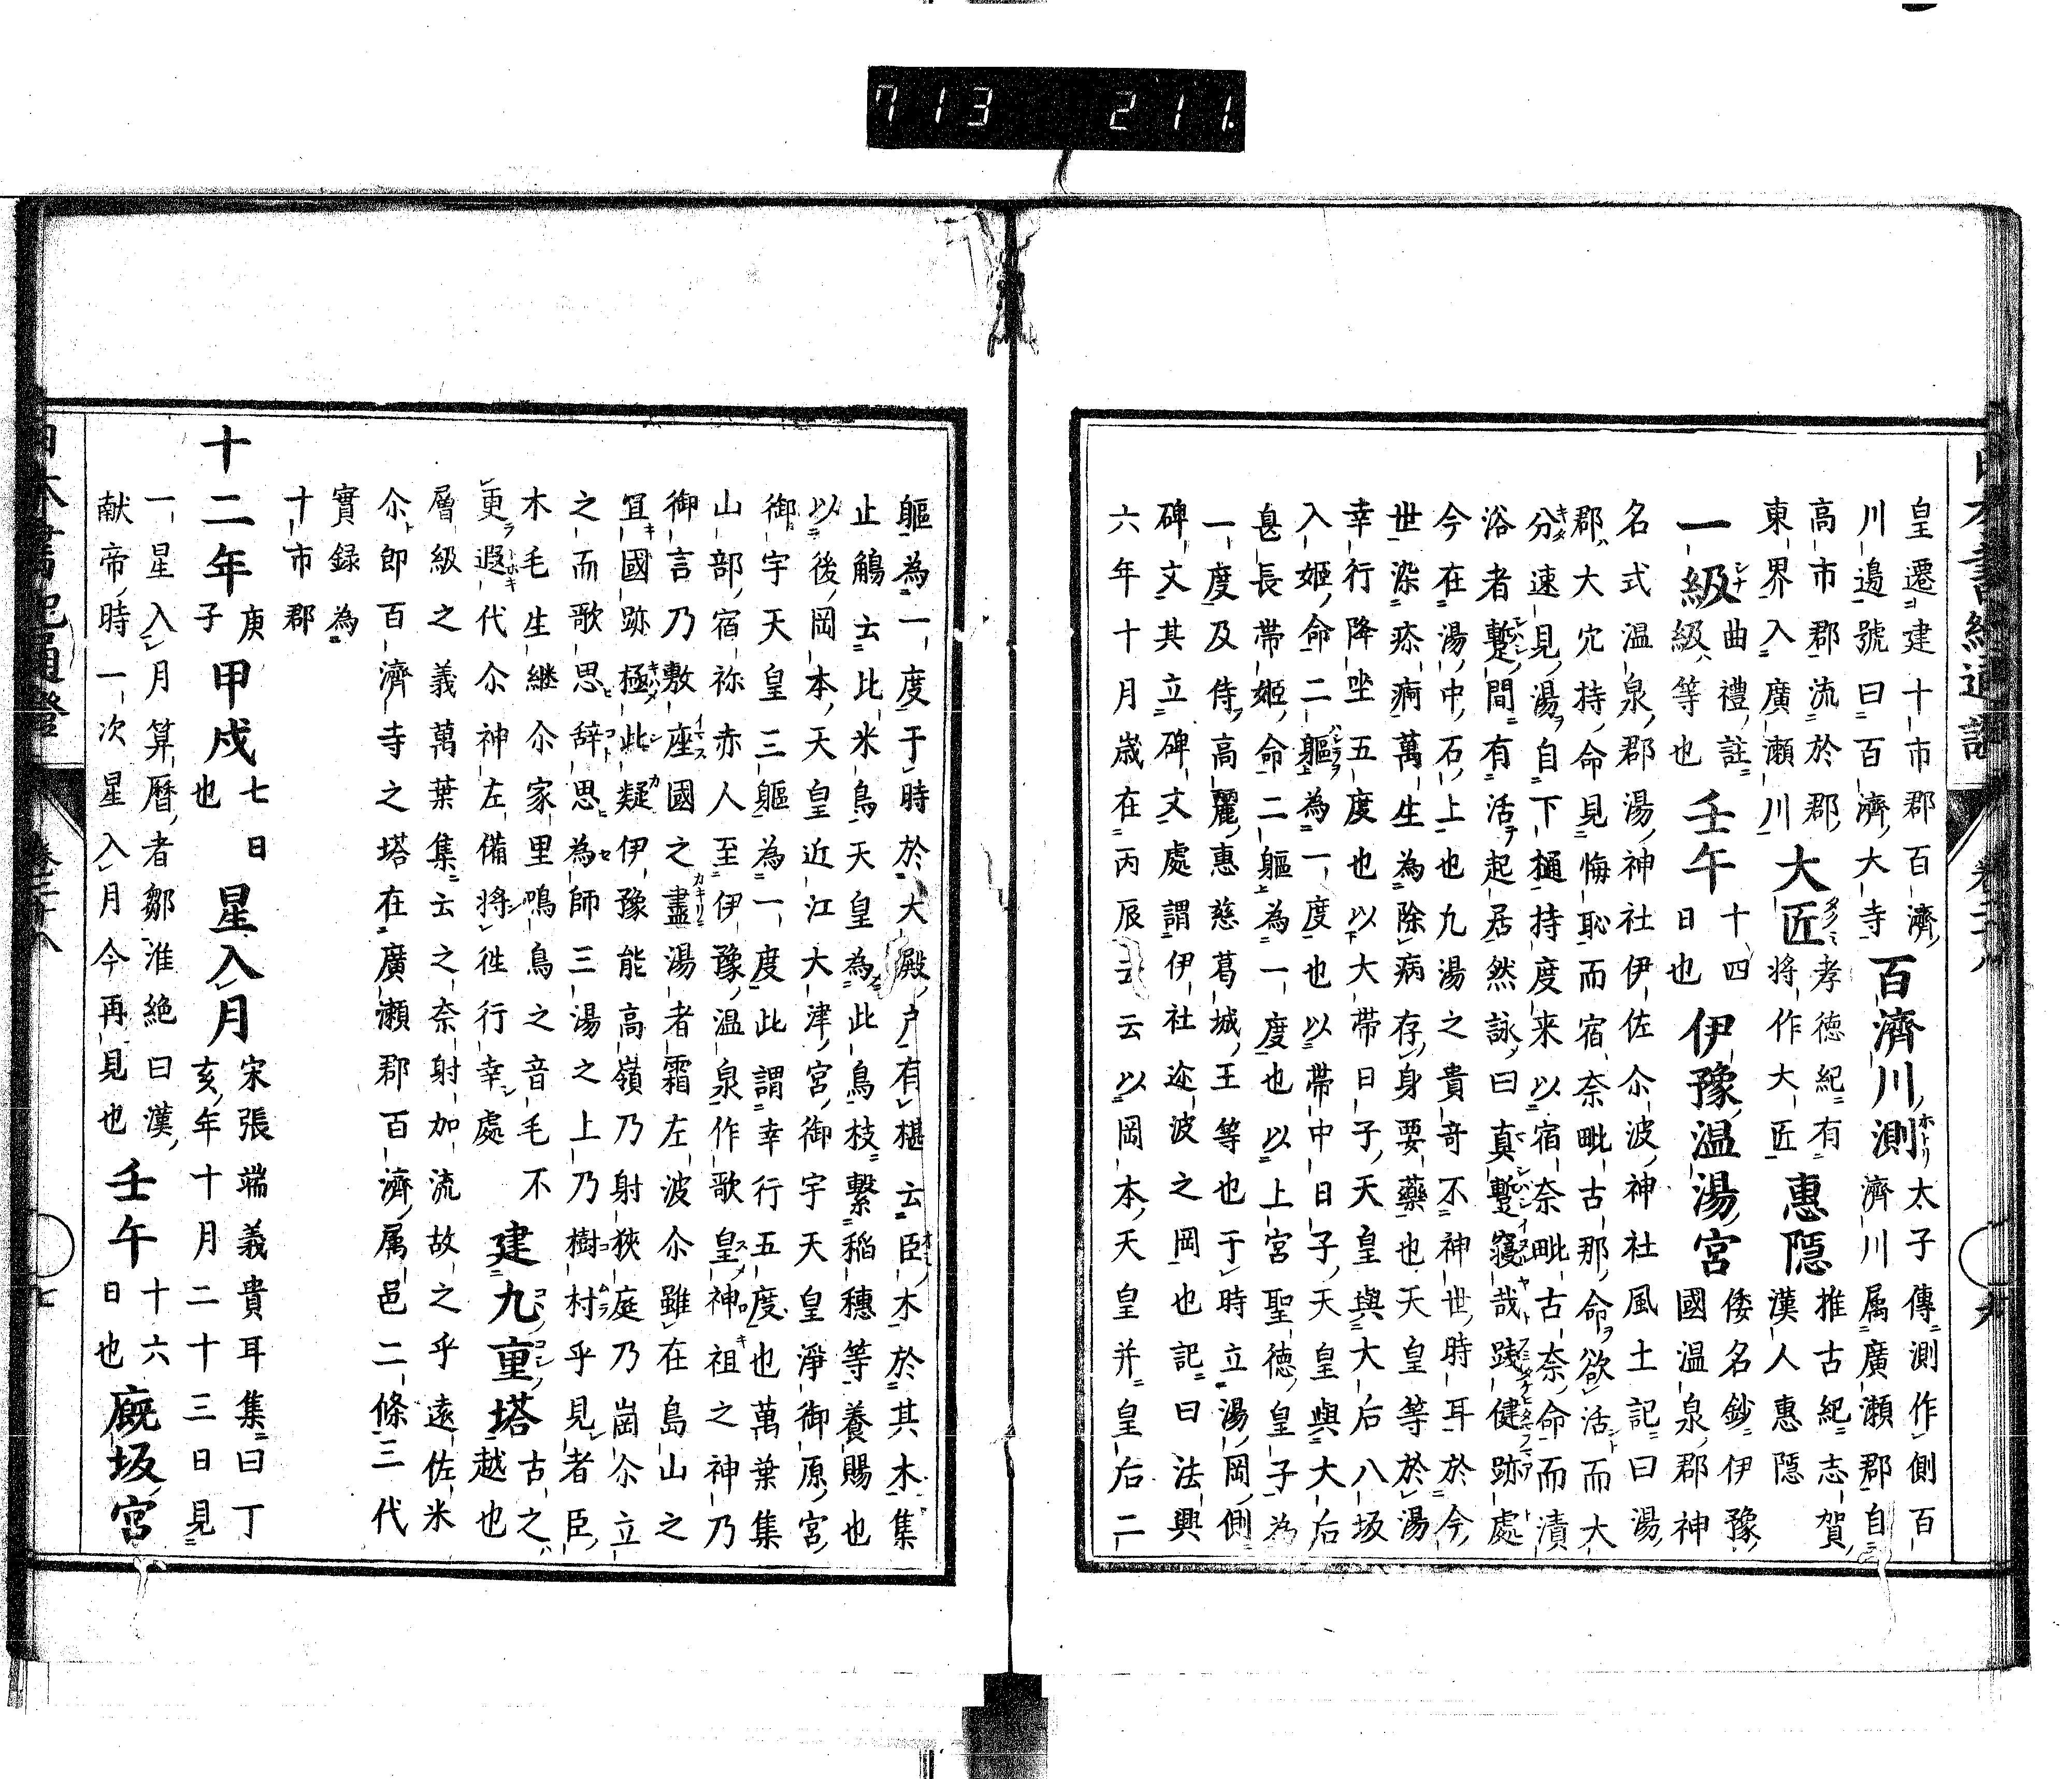 713 211.
皇遷建十市郡百濟
川邉號曰百濟大寺
百濟川測
太子傳測作側百
濟川属廣瀬郡自
高市郡流於郡
東界入廣瀬川
大匠
孝徳紀有
将作大匠
惠隠
推古紀志賀
漢人惠隠
一級
曲禮註
級等也
壬午
十四
日也
伊豫温湯宮
倭名鈔伊豫
國温泉郡神
名式温泉郡湯神社伊佐尒波神社風土記曰湯
郡大穴持命見悔恥而宿奈毗古那命欲活而大
分速見湯自下樋持度来以宿奈毗古奈命而漬
浴者蹔間有活起居然詠曰真蹔寝哉践健跡處
今在湯中石上也九湯之貴奇不神世時耳於今
世染疹痾萬生為除病存身要藥也天皇等於湯
幸行降坐五度也以大帯日子天皇與大后八坂
入姫命二軀為一度也以帯中日子天皇與大后
息長帯姫命二軀為一度也以上宮聖徳皇子為
一度及侍高麗惠慈葛城王等也于時立湯岡側
碑文其立碑文處謂伊社迩波之岡也記曰法興
六年十月歳在丙辰云云以岡本天皇并皇后二
軀為一度于時於大殿戸有椹云臣木於其木集
止鵤云比米鳥天皇為此鳥枝繫稲穗等養賜也
以後岡本天皇近江大津宮御宇天皇淨御原宮
御宇天皇三軀為一度此謂幸行五度也萬葉集
山部宿祢赤人至伊豫温泉作歌皇神祖之神乃
御言乃敷座國之盡湯者霜左波尒雖在島山之
宜國跡極此疑伊豫能高嶺乃射狹庭乃崗尒立
之而歌思辞思為師三湯之上乃樹村乎見者臣
木毛生継尒家里鳴鳥之音毛不
更遐代尒神左備将徃行幸處
建九重塔
古之
越也
層級之義萬葉集云之奈射加流故之乎遠佐米
尒即百濟寺之塔在廣瀬郡百濟属邑二條三代
實録為
十市郡
十二年
庚
子
甲戌
七日
也
星入月
宋張端義貴耳集曰丁
亥年十月二十三日見
一星入月算暦者鄒淮絶曰漢
献帝時一次星入月今再見也
壬午
十六
日也
厩坂宮